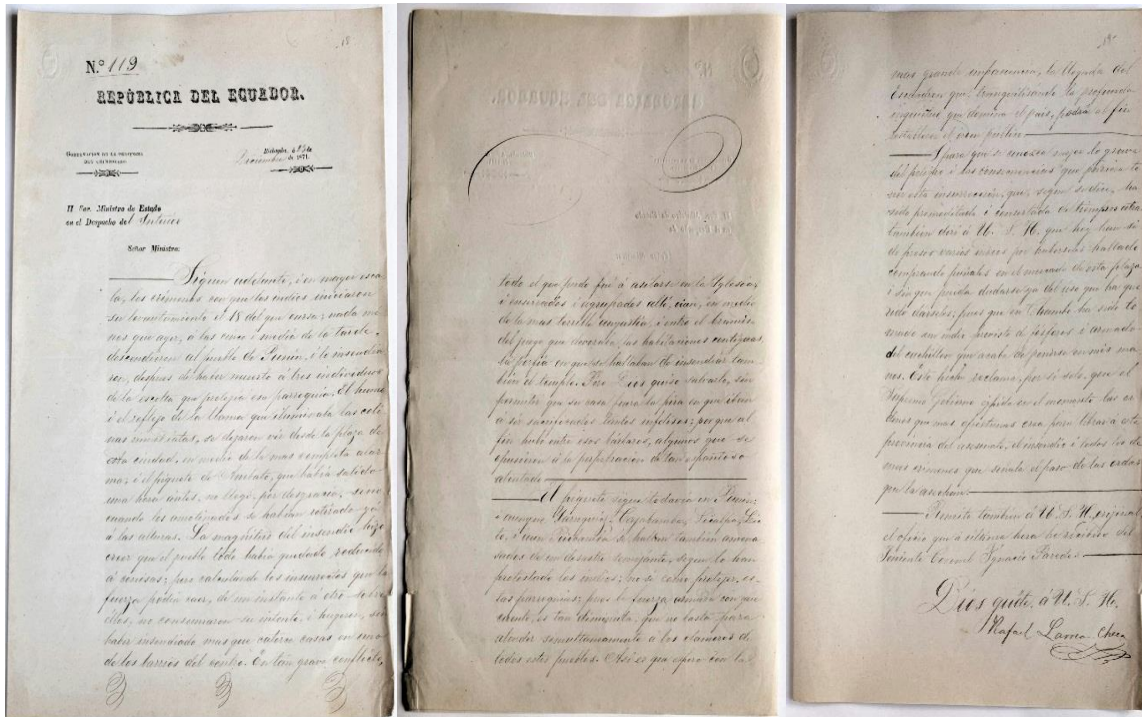 N.º 119
REPÚBLICA DEL ECUADOR.
GOBERNACION DE LA PROVINCIA
DEL CHIMBORAZO
Riobamba, á
Diciembre de 1871.
Il Sor. Ministro de Estado
en el Despacho del Interior
Señor Ministro:
Siguen adelante, i en mayor esca
la, los crímenes con que los indios iniciaron
su levantamiento el 18 del que cursa; nada me
nos que ayer, á las cinco i media de la tarde,
descendieron al pueblo de Punin, i lo incendia
ron, despues de haber muerto á tres individuos
de la escolta que protejia esa parroquia. El humo
i el reflejo de la llama que iluminaba las coli
nas inmediatas, se dejaron ver desde la plaza de
esta ciudad, en medio de la mas completa alar
ma; i el piquete de Ambato, que habia salido
una hora antes, no llegó, por desgracia, sino
cuando los amotinados se habian retirado ya
á las alturas. La magnitud del incendio hizo
creer que el pueblo todo habia quedado reducido
á cenizas; pero calculando los insurrectos que la
fuerza podia caer, de un instante á otro sobre
ellos, no consumaron su intento, i huyeron, sin
haber incendiado mas que catorce casas en uno
de los barrios del centro. En tan grave conflicto,
todo el que pudo fué á asilarse en la Iglesia;
i encerrados i agrupados allí, oian, en medio
de la mas terrible angustia, i entre el bramido
del fuego que devoraba las habitaciones contiguas,
la porfia en que se hallaban de incendiar tam
bien el templo. Pero Dios quiso salvarlo, sin
permitir que su casa fuera la pira en que iban
á ser sacrificados tantos infelices; porque al
fin hubo entre esos bárbaros, algunos que se
opusieron á la perpetracion de tan espantoso
atentado.
El piquete sigue todavia en Punin;
i aunque Yaruquíes, Cajabamba, Sicalpa, Li
to, i San Luis se hallan tambien amena
zados de un desastre semejante, segun lo han
protestado los indios; no se como protejer es
tas parroquias; pues la fuerza armada con que
cuento, es tan diminuta, que no basta para
atender simultaneamente á los clamores de
todos estos pueblos. Así es que espero con la
mas grande impaciencia, la llegada del
Escuadron que, tranquilizando la profunda
inquietud que domina el pais, podrá al fin
restablecer el órden público.
I para que se conozca mejor lo grave
del peligro i las consecuencias que pudiera te
ner esta insurreccion, que, segun se dice, ha
sido premeditada i concertada de tiempo atras,
tambien diré á U. S. H. que hoy han si
do presos varios indios por haberseles hallado
comprando puñales en el mercado de esta plaza,
i sin que pueda dudarse ya del uso que han que
rido darles; pues que en Chambo ha sido to
mado un indio provisto de fósforos i armado
del cuchillo que acaba de ponerse en mis ma
nos. Este hecho reclama, por sí solo, que el
Supremo Gobierno espida en el momento las ór
denes que mas oportunas crea para librar á esta
provincia del asesinato, el incendio i todos los de
mas crímenes que señala el paso de las ordas
que la asechan.
Remito tambien á U. S. H. original
el oficio que á última hora he recibido del
Teniente Coronel Ignacio Paredes.
Dios guíe. á U. S. H.
Rafael Larrea Checa